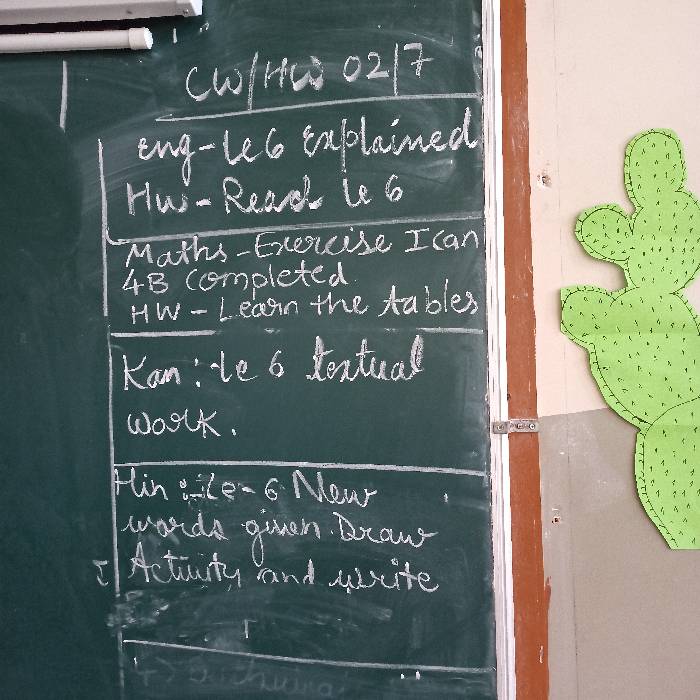 CW/HW 02/7
Eng-le6 Explained
HW-Read le 6
Maths-Exercise I can
4B Completed
HW-Learn the tables
Kan: le 6 textual
work.
Hin: Le-6 New
words given. Draw
Activity and write